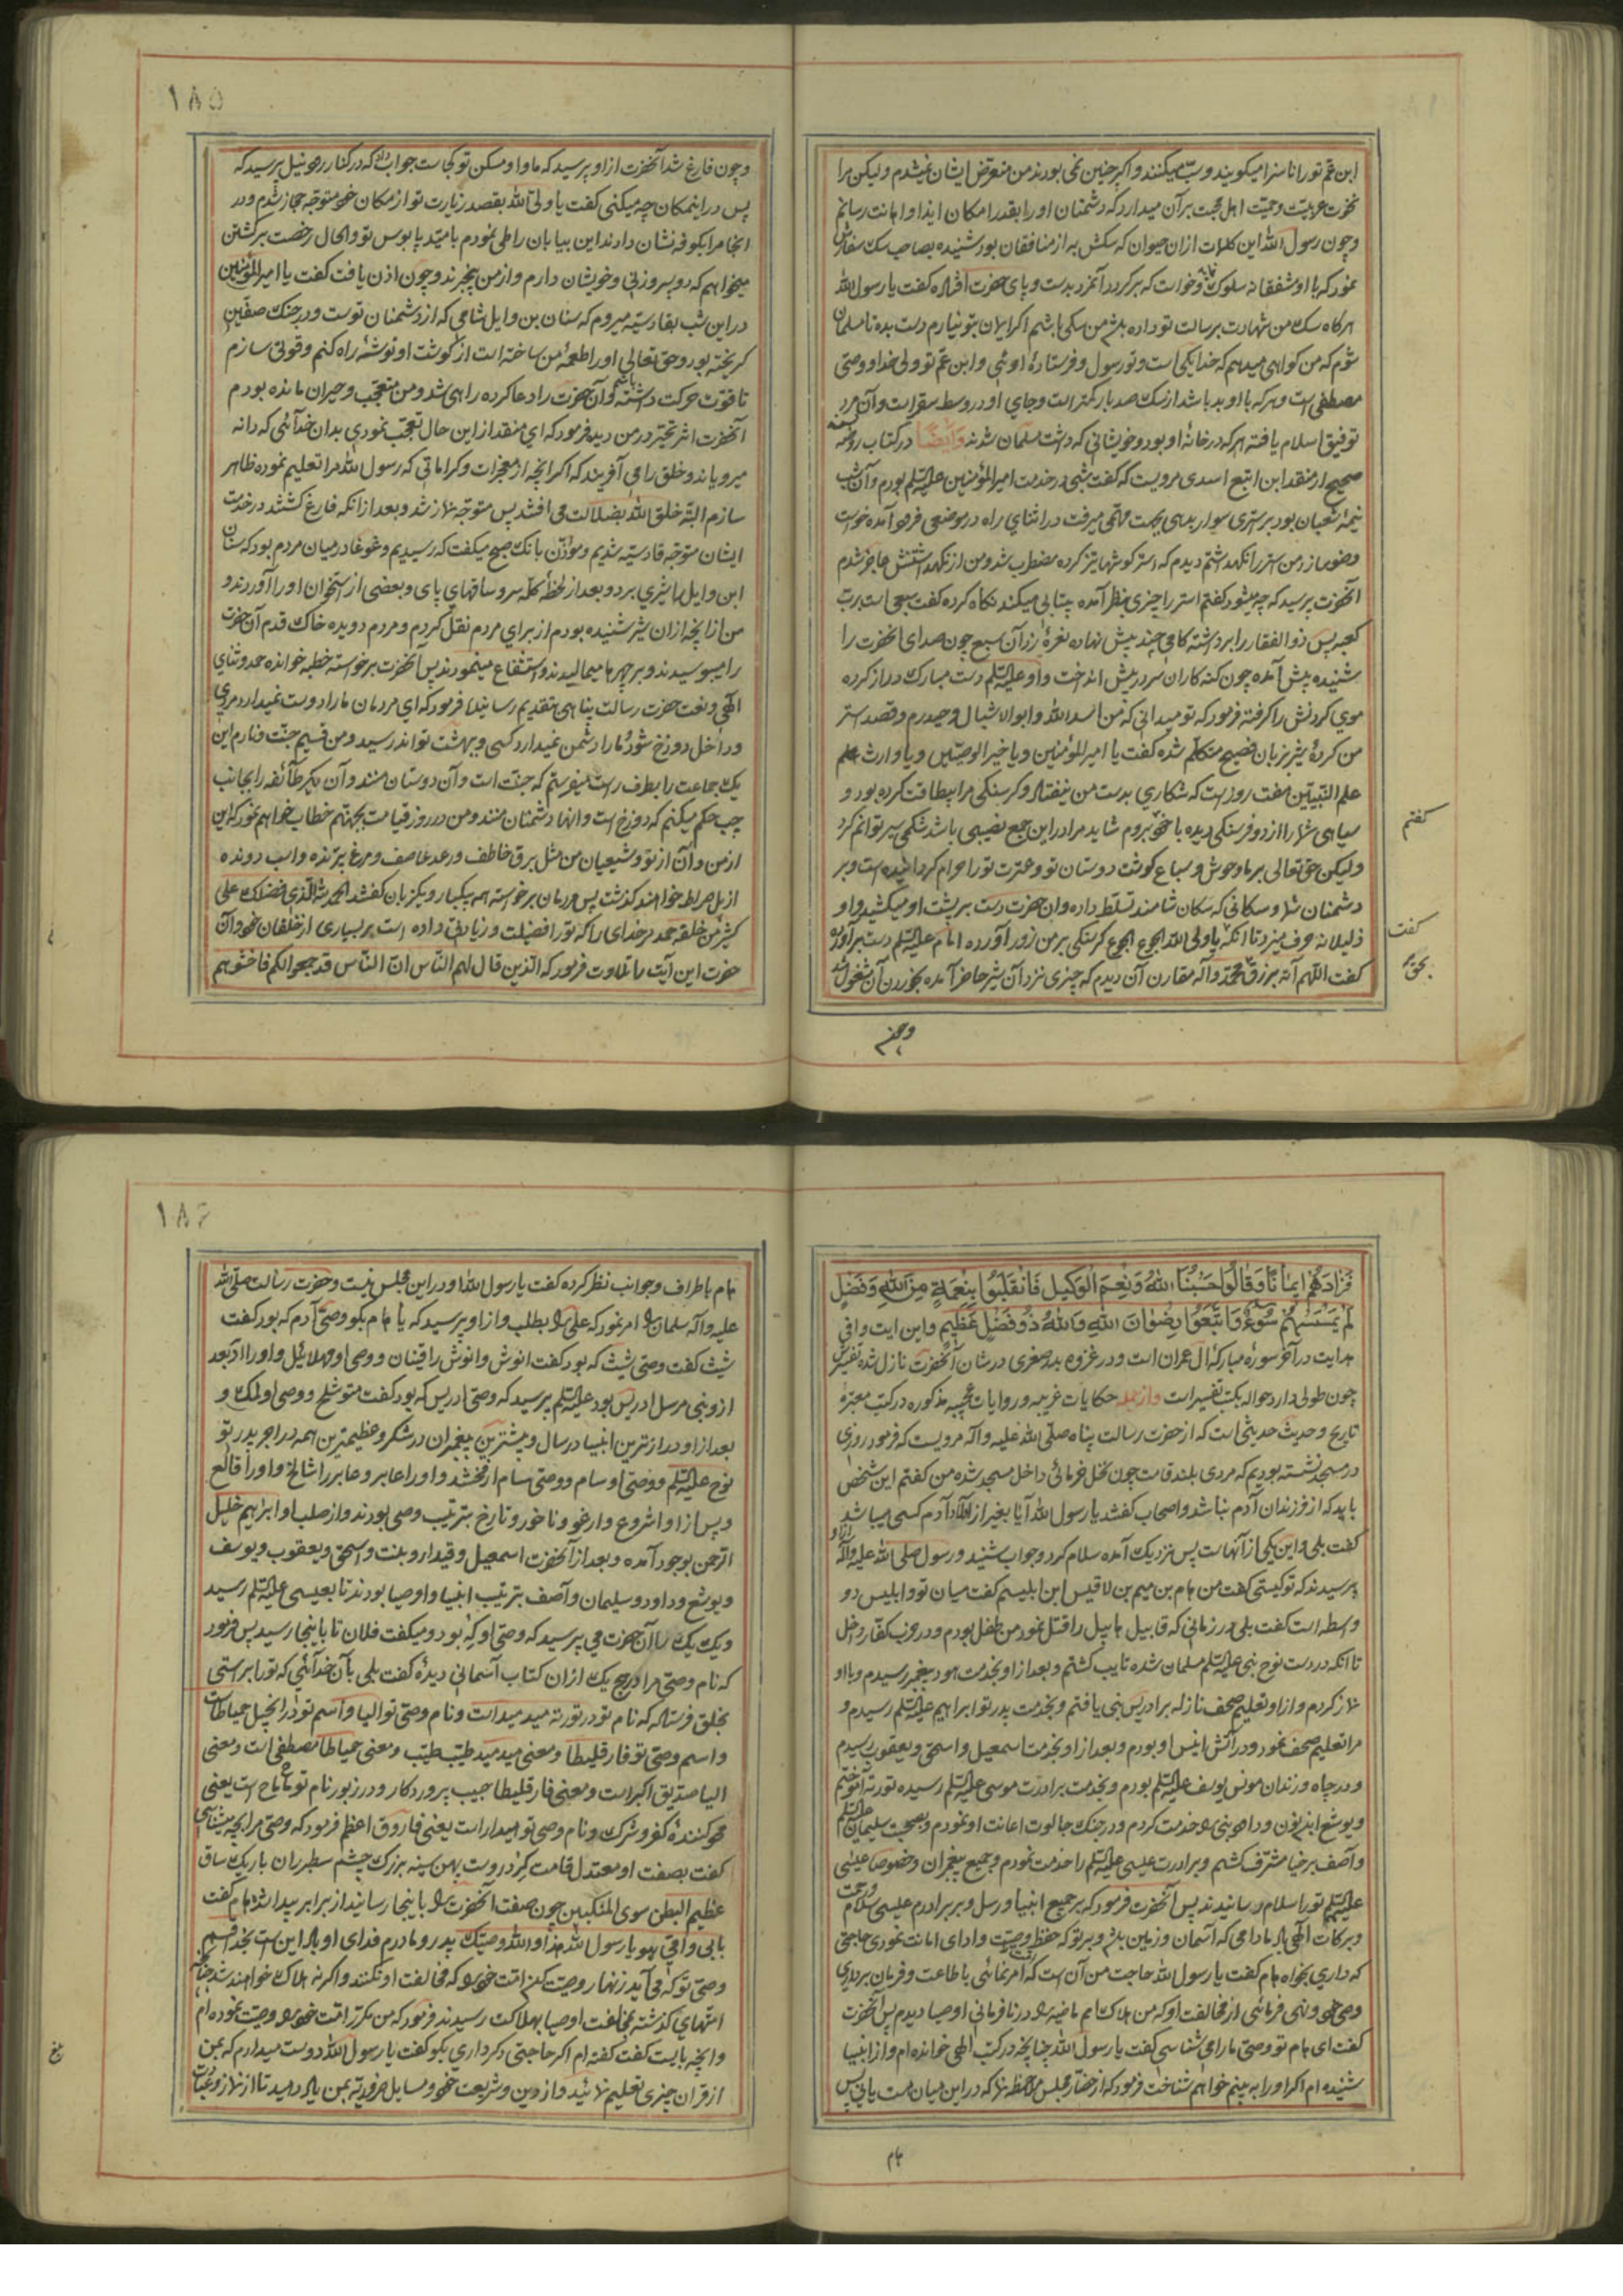 ابن عم تو را ناسزا میکویند و سب میکنند و اکر چنین نمی بودند من متعرض ایشان نمیشدم و لیکن مرا
نخوت عربیت و حمیت اهل محبت بر آن میدارد که دشمنان او را بقدر امکان ایذا و اهانت رسانم
و چون رسول الله این کلمات از ان حیوان که سکش به از منافقان بود شنیده بصاحب سک سفارش
نمود که با او مشفقانه سلوک و خواست که بر کردد آنمرد بدست و پای حضرت افتاده کفت یا رسول الله
هر کاه سک من شهادت برسالت تو داده باشد من سکی باشم اکر ایمان بتو نیارم دست بده تا مسلمان
شوم که من کواهی میدهم که خدا یکی است و تو رسول و فرستادهٔ اوئی و ابن عم تو ولی خدا و وصی
مصطفی است و هر که با او بد باشد از سک صد بار کمتر است و جای او در وسط سقر است و آن مرد
توفیق اسلام یافته هر که در خانهٔ او بود و خویشانی که داشت مسلمان شدند وایضا در کتاب روضه
صحیح از منقد ابن ابتع اسدی مرویست که کفت شبی در خدمت امیرالمؤمنین علیه السلم بودم و آن شب
نیمهٔ شعبان بود بر استری سوار بدهی بجهت مهمی میرفت در اثنای راه در موضعی فرود آمده خواست
وضو سازد من استر را نکهداشتم دیدم که استر کوشها تیز کرده مضطرب شد و من از نکهداشتنش عاجز شدم
آنحضرت پرسید که چه میشود کفتم استر را چیزی بنظر آمده بیتابی میکند نکاه کرده کفت سبعی است برب
کعبه پس ذوالفقار را برداشته کامی چند پیش نهاده نعرهٔ زد آن سبع چون صدای آنحضرت را
شنیده پیش آمده چون کنه کاران سر در پیش انداخت و او علیه السلم دست مبارک دراز کرده
موی کردنش را کرفته فرمود که تو میدانی که من اسد الله و ابو الاشبال و حیدرم و قصد استر
من کردهٔ شیر بزبان فصیح متکلم شده کفت یا امیرالمؤمنین و یا خیر الوصیین و یا وارث علم
علم النبیین هفت روز است که شکاری بدست من نیفتاد و کرسنکی مرا بیطاقت کرده بود و
سیاهی شما را از دو فرسنکی دیده با خود بروم شاید مرا در این جمع نصیبی باشد شکمی سیر توانم کرد
ولیکن حق تعالی بر ما وحوش و سباع کوشت دوستان تو و عترت تو را حرام کردانیده است و بر
دشمنان شما و سکانی که سکان شامند تسلط داده و ان حضرت دست بر پشت او میکشید و او
ذلیلانه حرف میزد تا انکه یا ولی الله الجوع الجوع کرسنکی بر من زور آورده امام علیه السلم دست برآورده
کفت اللهم آته برزق محمد و آله مقارن آن دیدم که چیزی نزد آن شیر حاضر آمده بخوردن آن مشغول شد
کفتم
کفت
بحق
و چون
۱۸۵
و چون فارغ شد آنحضرت از او پرسید که ماوا و مسکن تو کجاست جواب داد که در کنار رود نیل پرسید که
پس در اینمکان چه میکنی کفت یا ولی الله بقصد زیارت تو از مکان خود متوجه حجاز شدم و در
انجا مرا بکوفه نشان دادند این بیابان را طی نمودم بامید پا بوس تو و الحال رخصت برکشتن
میخواهم که دو پسر و زنی و خویشان دارم و از من بیخبرند و چون اذن یافت کفت یا امیر المؤمنین
در این شب بقادسیه میروم که سنان بن وایل شامی که از دشمنان توست و در جنک صفین
کریخته بود و حق تعالی او را طعمهٔ من ساخته است از کوشت او توشهٔ راه کنم و قوتی سازم
تا قوت حرکت داشته باشم و آن حضرت را دعا کرده راهی شد و من متعجب و حیران مانده بودم
آنحضرت اثر تحیر در من دید فرمود که ای منقد از این حال تعجب نمودی بدان خدائی که دانه
میرویاند و خلق را می آفریند که اکر انچه از معجزات و کراماتی که رسول الله مرا تعلیم نموده ظاهر
سازم البته خلق الله بضلالت می افتند پس متوجه نماز شد و بعد از انکه فارغ کشتند در خدمت
ایشان متوجه قادسیه شدیم و مؤذن بانک صبح میکفت که رسیدیم و غوغا در میان مردم بود که سنان
ابن وایل را شیری برد و بعد از لحظهٔ کله سر و ساقهای پای و بعضی از استخوان او را آوردند و
من از انچه از ان شیر شنیده بودم از برای مردم نقل کردم و مردم دویده خاک قدم آن حضرت
را میبوسیدند و بر چهرها میمالیدند و استشفاع مینمودند پس آنحضرت برخواسته خطبه خوانده حمد و ثنای
الهی و نعت حضرت رسالت پناهی بتقدیم رسانید فرمود که ای مردمان ما را دوست نمیدارد مردی
و داخل دوزخ شود و ما را دشمن نمیدارد کسی و ببهشت تواند رسید و من قسیم جنت و نارم این
یک جماعت را بطرف راست میفرستم که جنت است و آن دوستان منند و آن دیکر طائفه را بجانب
چپ حکم میکنم که دوزخ است و انها دشمنان منند و من در روز قیامت بجهنم خطاب خواهم نمود که این
از من و آن از تو و شیعیان من مثل برق خاطف و رعد عاصف و مرغ پرنده و اسب دونده
از پل صراط خواهند کذشت پس مردمان برخواسته همه بیکبار و یکزبان کفتند الحمد لله الذی فضلک علی
کثیر من خلقه حمد مر خدای را که تو را فضیلت و زیادتی داده است بر بسیاری از خلقان خود آن
حضرت این آیت را تلاوت فرمود که الذین قال لهم الناس ان الناس قد جمعوا لکم فاخشوهم
فزادهم ایمانا وقالوا حسبنا الله ونعم الوکیل فانقلبوا بنعمة من الله وفضل
لم یمسسهم سوء واتبعوا رضوان الله والله ذو فضل عظیم و این ایت وافی
هدایت در آخر سورهٔ مبارکهٔ ال عمران است و در غزوه بدر صغری در شان آنحضرت نازل شده تفسیرش
چون طولی دارد حواله بکتب تفسیر است وازجمله حکایات غریبه و روایات عجیبه مذکوره در کتب معتبرهٔ
تاریخ و حدیث حدیثی است که از حضرت رسالت پناه صلی الله علیه و آله مرویست که فرمود روزی
در مسجد نشسته بودیم که مردی بلند قامت چون نخل خرمائی داخل مسجد شده من کفتم این شخص
باید که از فرزندان آدم نباشد و اصحاب کفتند یا رسول الله آیا بغیر از اولاد آدم کسی میباشد
کفت بلی و این یکی از آنهاست پس نزدیک آمده سلام کرد و جواب شنید و رسول صلی الله علیه و آله از او
پرسیدند که تو کیستی کفت من هام بن هیم بن لاقیس ابن ابلیسم کفت میان تو و ابلیس دو
واسطه است کفت بلی در زمانی که قابیل هابیل را قتل نمود من طفل بودم و در حزب کفار داخل
تا انکه در دست نوح نبی علیه السلم مسلمان شده تایب کشتم و بعد از او بخدمت هود پیغمبر رسیدم و با او
نماز کردم و از او تعلیم صحف نازله بر ادریس نبی یافتم و بخدمت پدر تو ابراهیم علیه السلم رسیدم و
مرا تعلیم صحف نمود و در آتش انیس او بودم و بعد از او بخدمت اسمعیل و اسحق و یعقوب رسیدم
و در چاه و زندان مونس یوسف علیه السلم بودم و بخدمت برادرت موسی علیه السلم رسیده توریة آموختم
و یوشع ابن نون و داود نبی را خدمت کردم و در جنک جالوت اعانت او نمودم و بصحبت سلیمان علیه السلم
و آصف برخیا مشرف کشتم و برادرت عیسی علیه السلم را خدمت نمودم و جمیع پیغمبران و خصوصا عیسی
علیه السلم تو را سلام رسانیدند پس آنحضرت فرمود که بر جمیع انبیا و رسل و بر برادرم عیسی سلام و رحمت
و برکات الهی باد مادامی که آسمان و زمین باشد و بر تو که حفظ وصیت و ادای امانت نمودی حاجتی
که داری بخواه هام کفت یا رسول الله حاجت من آن است که امت امر نمائی باطاعت و فرمان برداری
وصی خود و نهی فرمائی از مخالفت او که من هلاک امم ماضیه را در نافرمانی اوصیا دیدم پس آنحضرت
کفت ای هام تو وصی ما را می شناسی کفت یا رسول الله چنانچه در کتب الهی خوانده ام و از انبیا
شنیده ام اکر او را به بینم خواهم شناخت فرمود که از حضار مجلس ملاحظه نما که در این میان هست یا نی پس
هام
۱۸۶
هام باطراف و جوانب نظر کرده کفت یا رسول الله او در این مجلس نیست و حضرت رسالت صلی الله
علیه و آله سلمان را امر نمود که علی را بطلب و از او پرسید که یا هام بکو وصی آدم که بود کفت
شیث کفت وصی شیث که بود کفت انوش و انوش را قینان و وصی او مهلائیل و او را ادد و بعد
از و نبی مرسل ادریس بود علیه السلم پرسید که وصی ادریس که بود کفت متوشلخ و وصی او لمک و
بعد از او دراز ترین انبیا در سال و بیشترین پیغمبران در شکر و عظیمترین همه در اجر پدر تو
نوح علیه السلم و وصی او سام و وصی سام ارفخشد و او را عابر و عابر را شالخ و او را قالع
و پس از او اشروع و ارغو و ناخور و تارخ بترتیب وصی بودند و از صلب او ابراهیم خلیل
الرحمن بوجود آمده و بعد از آنحضرت اسمعیل و قیدار و بلنت و اسحق و یعقوب و یوسف
و یوشع و داود و سلیمان و آصف بترتیب انبیا و اوصیا بودند تا بعیسی علیه السلم رسید
و یک یک را آن حضرت می پرسید که وصی او که بود و میکفت فلان تا باینجا رسید پس فرمود
که نام وصی مرا در هیچ یک از ان کتاب آسمانی دیدهٔ کفت بلی بآن خدائی که تو را براستی
بخلق فرستاد که نام تو در توریة میدمید است و نام وصی تو الیا و اسم تو در انجیل حمیاطاست
و اسم وصی تو فارقلیطا و معنی میدمید طیب طیب و معنی حمیاطا مصطفی است و معنی
الیا صدیق اکبر است و معنی فارقلیطا حبیب پروردکار و در زبور نام تو ماح ماح است یعنی
محو کنندهٔ کفر و شرک و نام وصی تو هیدار است یعنی فاروق اعظم فرمود که وصی مرا بچه میشناسی
کفت بصفت او معتدل قامت کرد روست پهن سینه بزرک چشم سطبر ران باریک ساق
عظیم البطن سوی المنکبین چون صفت آنحضرت را باینجا رسانید از برابر پیدا شد هام کفت
بابی و امی هو یا رسول الله هذا والله وصیک پدر و مادرم فدای او باد این است بخدا قسم
وصی تو که می آید زنهار وصیت کن امت خود را که مخالفت او نکنند و اکر نه هلاک خواهند شد چنانچه
امتهای کذشته بمخالفت اوصیا بهلاکت رسیدند فرمود که من مکرر امت خود را وصیت نموده ام
و انچه بایست کفت کفته ام اکر حاجتی دیکر داری بکو کفت یا رسول الله دوست میدارم که بمن
از قران چیزی تعلیم نمائید و از دین و شریعت خود و مسایل ضروریه بمن یاد دهید تا از نماز و عبادت